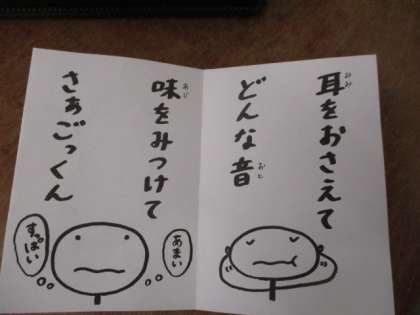 耳をおさえて
みみ
どんな音
おと
味をみつけて
あじ
さぁごっくん
あまい
すっぱい